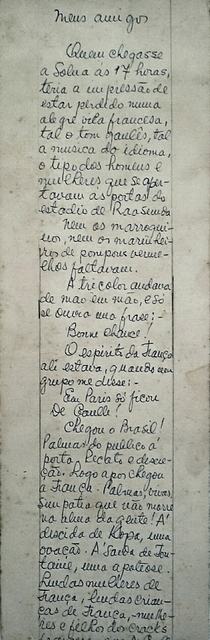 Meus amigos
Quem chegasse
a Solna ás 17 horas,
teria a impressão de
estar perdido numa
alegre vila francesa,
tal o tom gaulês, tal
a musica do idioma,
o tipo dos homens e
mulheres que se aper-
tavam ás portas do
estadio de Raasunda
Nem os marroqui-
nos, nem os marinhei-
ros de pompons verme-
lhos faltavam.
A tricolor andava
de mão em mão, e só
se ouvia uma frase: -
Bonne chance!
O espirito da França
ali estava, quando um
grupo me disse: -
Em Paris só ficou
De Gaulle!
Chegou o Brasil!
Palmas do publico á
porta. Recato e discre-
ção. Logo apos chegou
a França. Palmas, vivas.
Simpatia que não morre
na alma da gente! Á
descida de Kopa, uma
ovação. A saida de Fon-
taine, uma apoteose.
Lindas mulheres de
França, lindas crian-
ças de França, mulhe-
res e filhos dos cracks